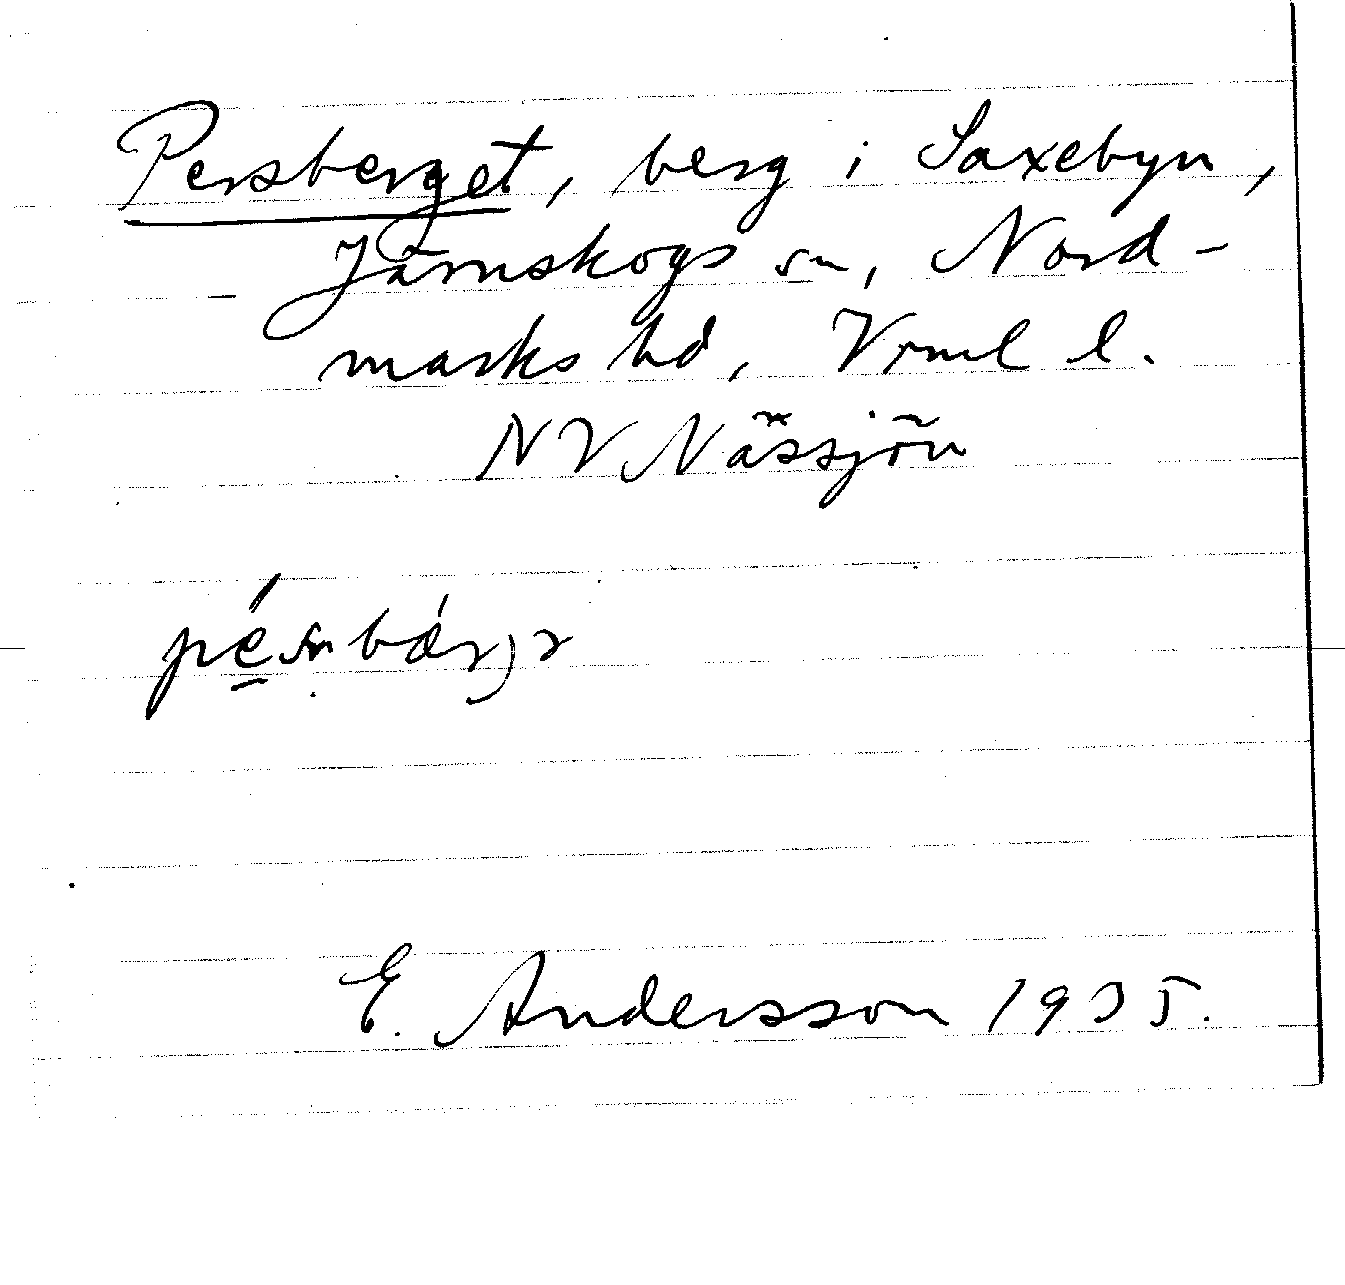 Persberget, berg i Saxebyn,
Järnskogs sn, Nord-
marks hd, Vrml l.
NV Nässjön
E. Andersson 1935.